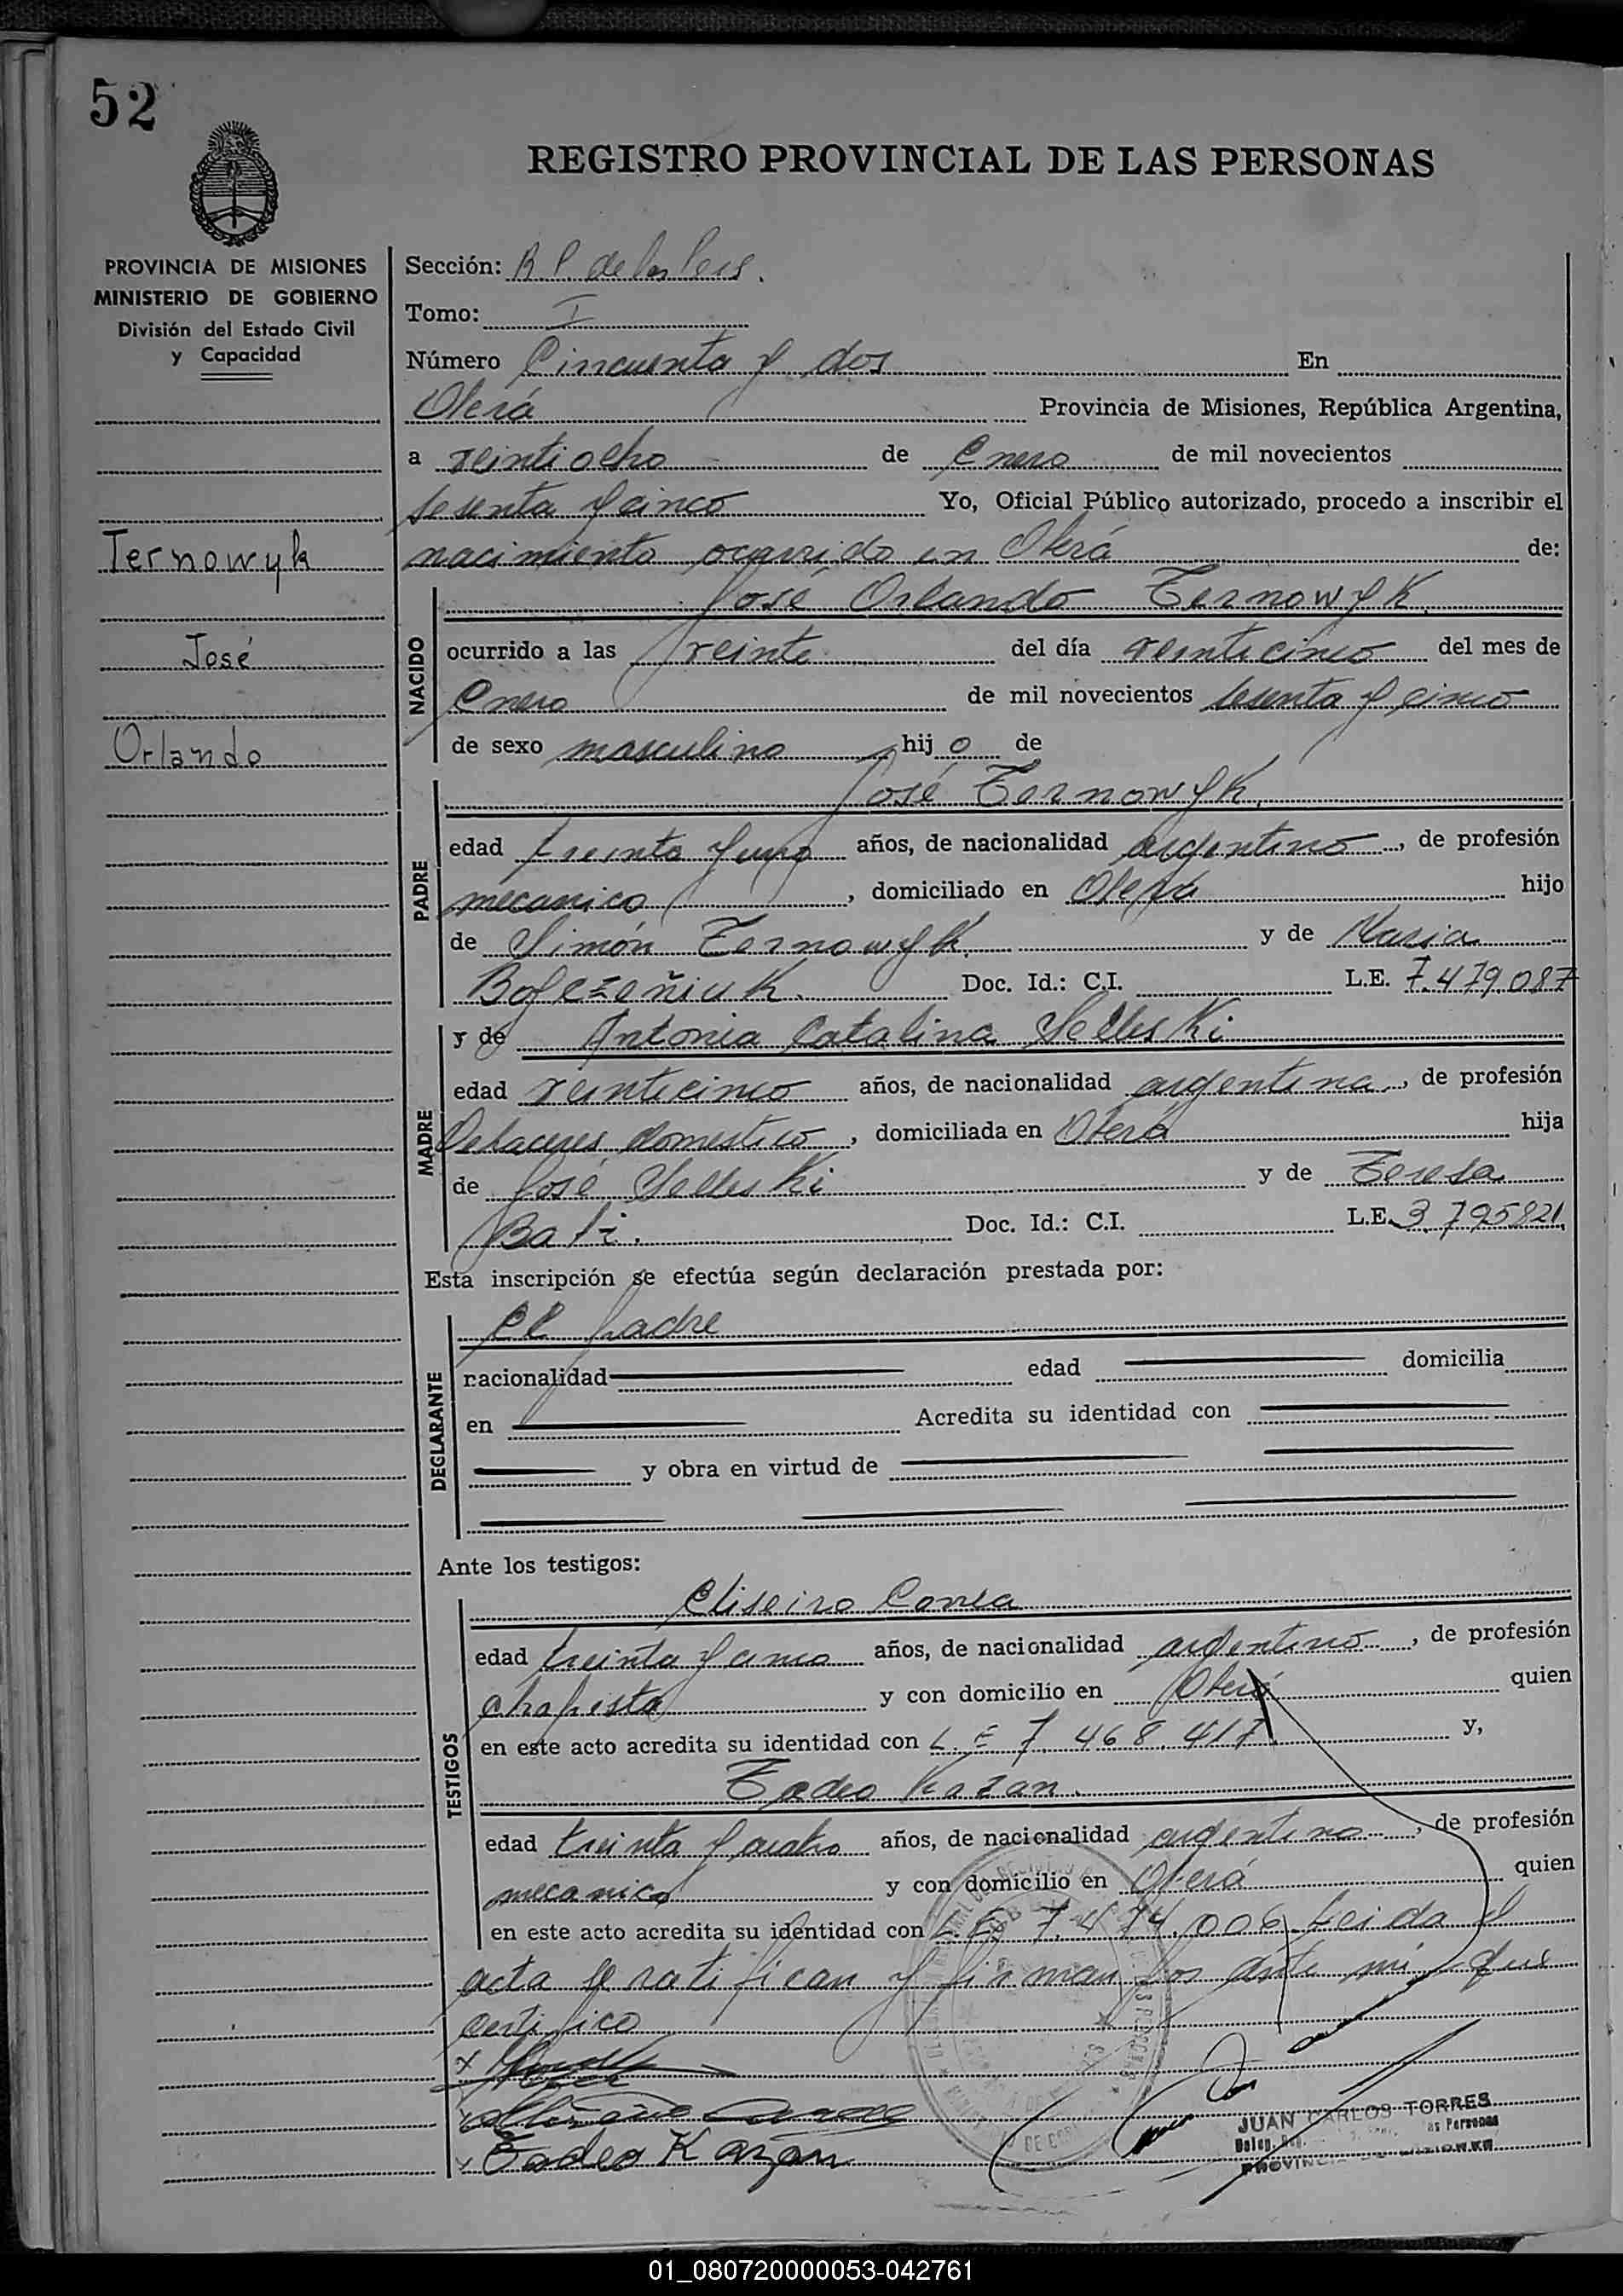 52
REGISTRO PROVINCIAL DE LAS PERSONAS
PROVINCIA DE MISIONES
MINISTERIO DE GOBIERNO
División del Estado Civil
y Capacidad
Ternowyk
José
Orlando
Sección: R P. de las Pers.
Tomo: I
Número Cincuenta y dos En
Oberá Provincia de Misiones, República Argentina,
a veintiocho de Enero de mil novecientos
sesenta y cinco Yo, Oficial Público autorizado, procedo a inscribir el
nacimiento ocurrido en Oberá de:
NACIDO
José Orlando Ternowyk.
ocurrido a las veinte del día veinticinco del mes de
Enero de mil novecientos sesenta y cinco
de sexo masculino hij o de
PADRE
José Ternowyk.
edad treinta y uno años, de nacionalidad argentino, de profesión
mecanico, domiciliado en Oberá hijo
de Simón Ternowyk. y de Maria
Doc. Id.: C.I. L.E. 7.479.087
MADRE
y de Antonia Catalina Selleski
edad veinticinco años, de nacionalidad argentina, de profesión
Qehaceres domestico, domiciliada en Oberá hija
de José Selleski y de Teresa
Doc. Id.: C.I. L.E. 3.795821
Esta inscripción se efectúa según declaración prestada por:
DECLARANTE
El padre
nacionalidad edad domicilia
en Acredita su identidad con
y obra en virtud de
Ante los testigos:
TESTIGOS
Eliseiro Correa
edad treinta y cinco años, de nacionalidad argentino, de profesión
chapista y con domicilio en Oberá quien
en este acto acredita su identidad con L. E 7. 468. 417. y,
Tadeo Kazan.
edad treinta y cuatro años, de nacionalidad argentino, de profesión
mecanico y con domicilio en Oberá quien
en este acto acredita su identidad con L.E. 7.474.006 Leida el
acta se ratifican y firman por ante mi, que
certifico
Tadeo Kazan
JUAN CARLOS TORRES
01_080720000053-042761